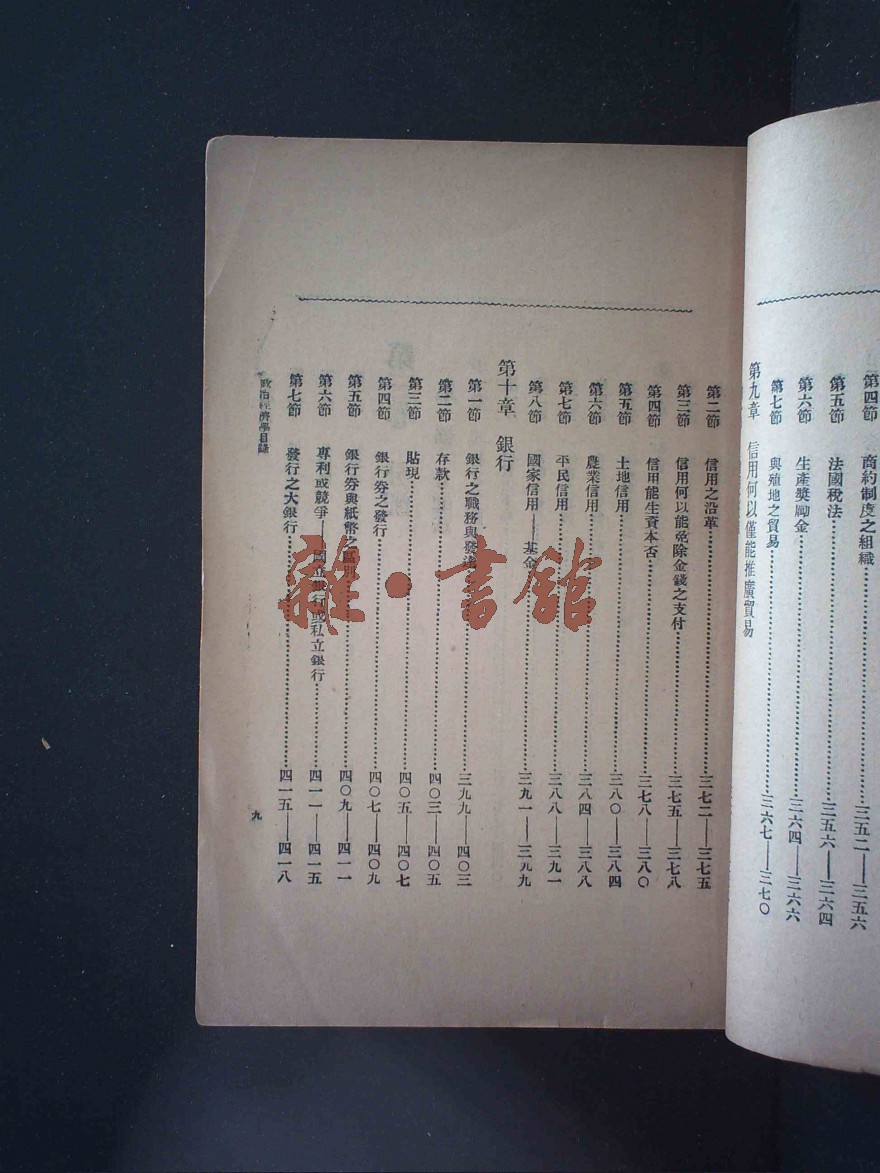 第四節 商約制度之組織……三五二——三五六
第五節 法國稅法……三五六——三六四
第六節 生產獎勵金……三六四——三六六
第七節 與殖地之貿易……三六七——三七〇
第九章 信用何以僅能推廣貿易
第二節 信用之沿革……三七二——三七五
第三節 信用何以能免除金錢之支付……三七五——三七八
第四節 信用能生資本否……三七八——三八〇
第五節 土地信用……三八〇——三八四
第六節 農業信用……三八四——三八八
第七節 平民信用……三八八——三九一
第八節 國家信用——基金……三九一——三九九
第十章 銀行
第一節 銀行之職務與發達……三九九——四〇三
第二節 存款……四〇三——四〇五
第三節 貼現……四〇五——四〇七
第四節 銀行券之發行……四〇七——四〇九
第五節 銀行券與紙幣之區別……四〇九——四一一
第六節 專利或競爭——國立銀行或私立銀行……四一一——四一五
第七節 發行之大銀行……四一五——四一八
政治經濟學目錄
九
雜·書館